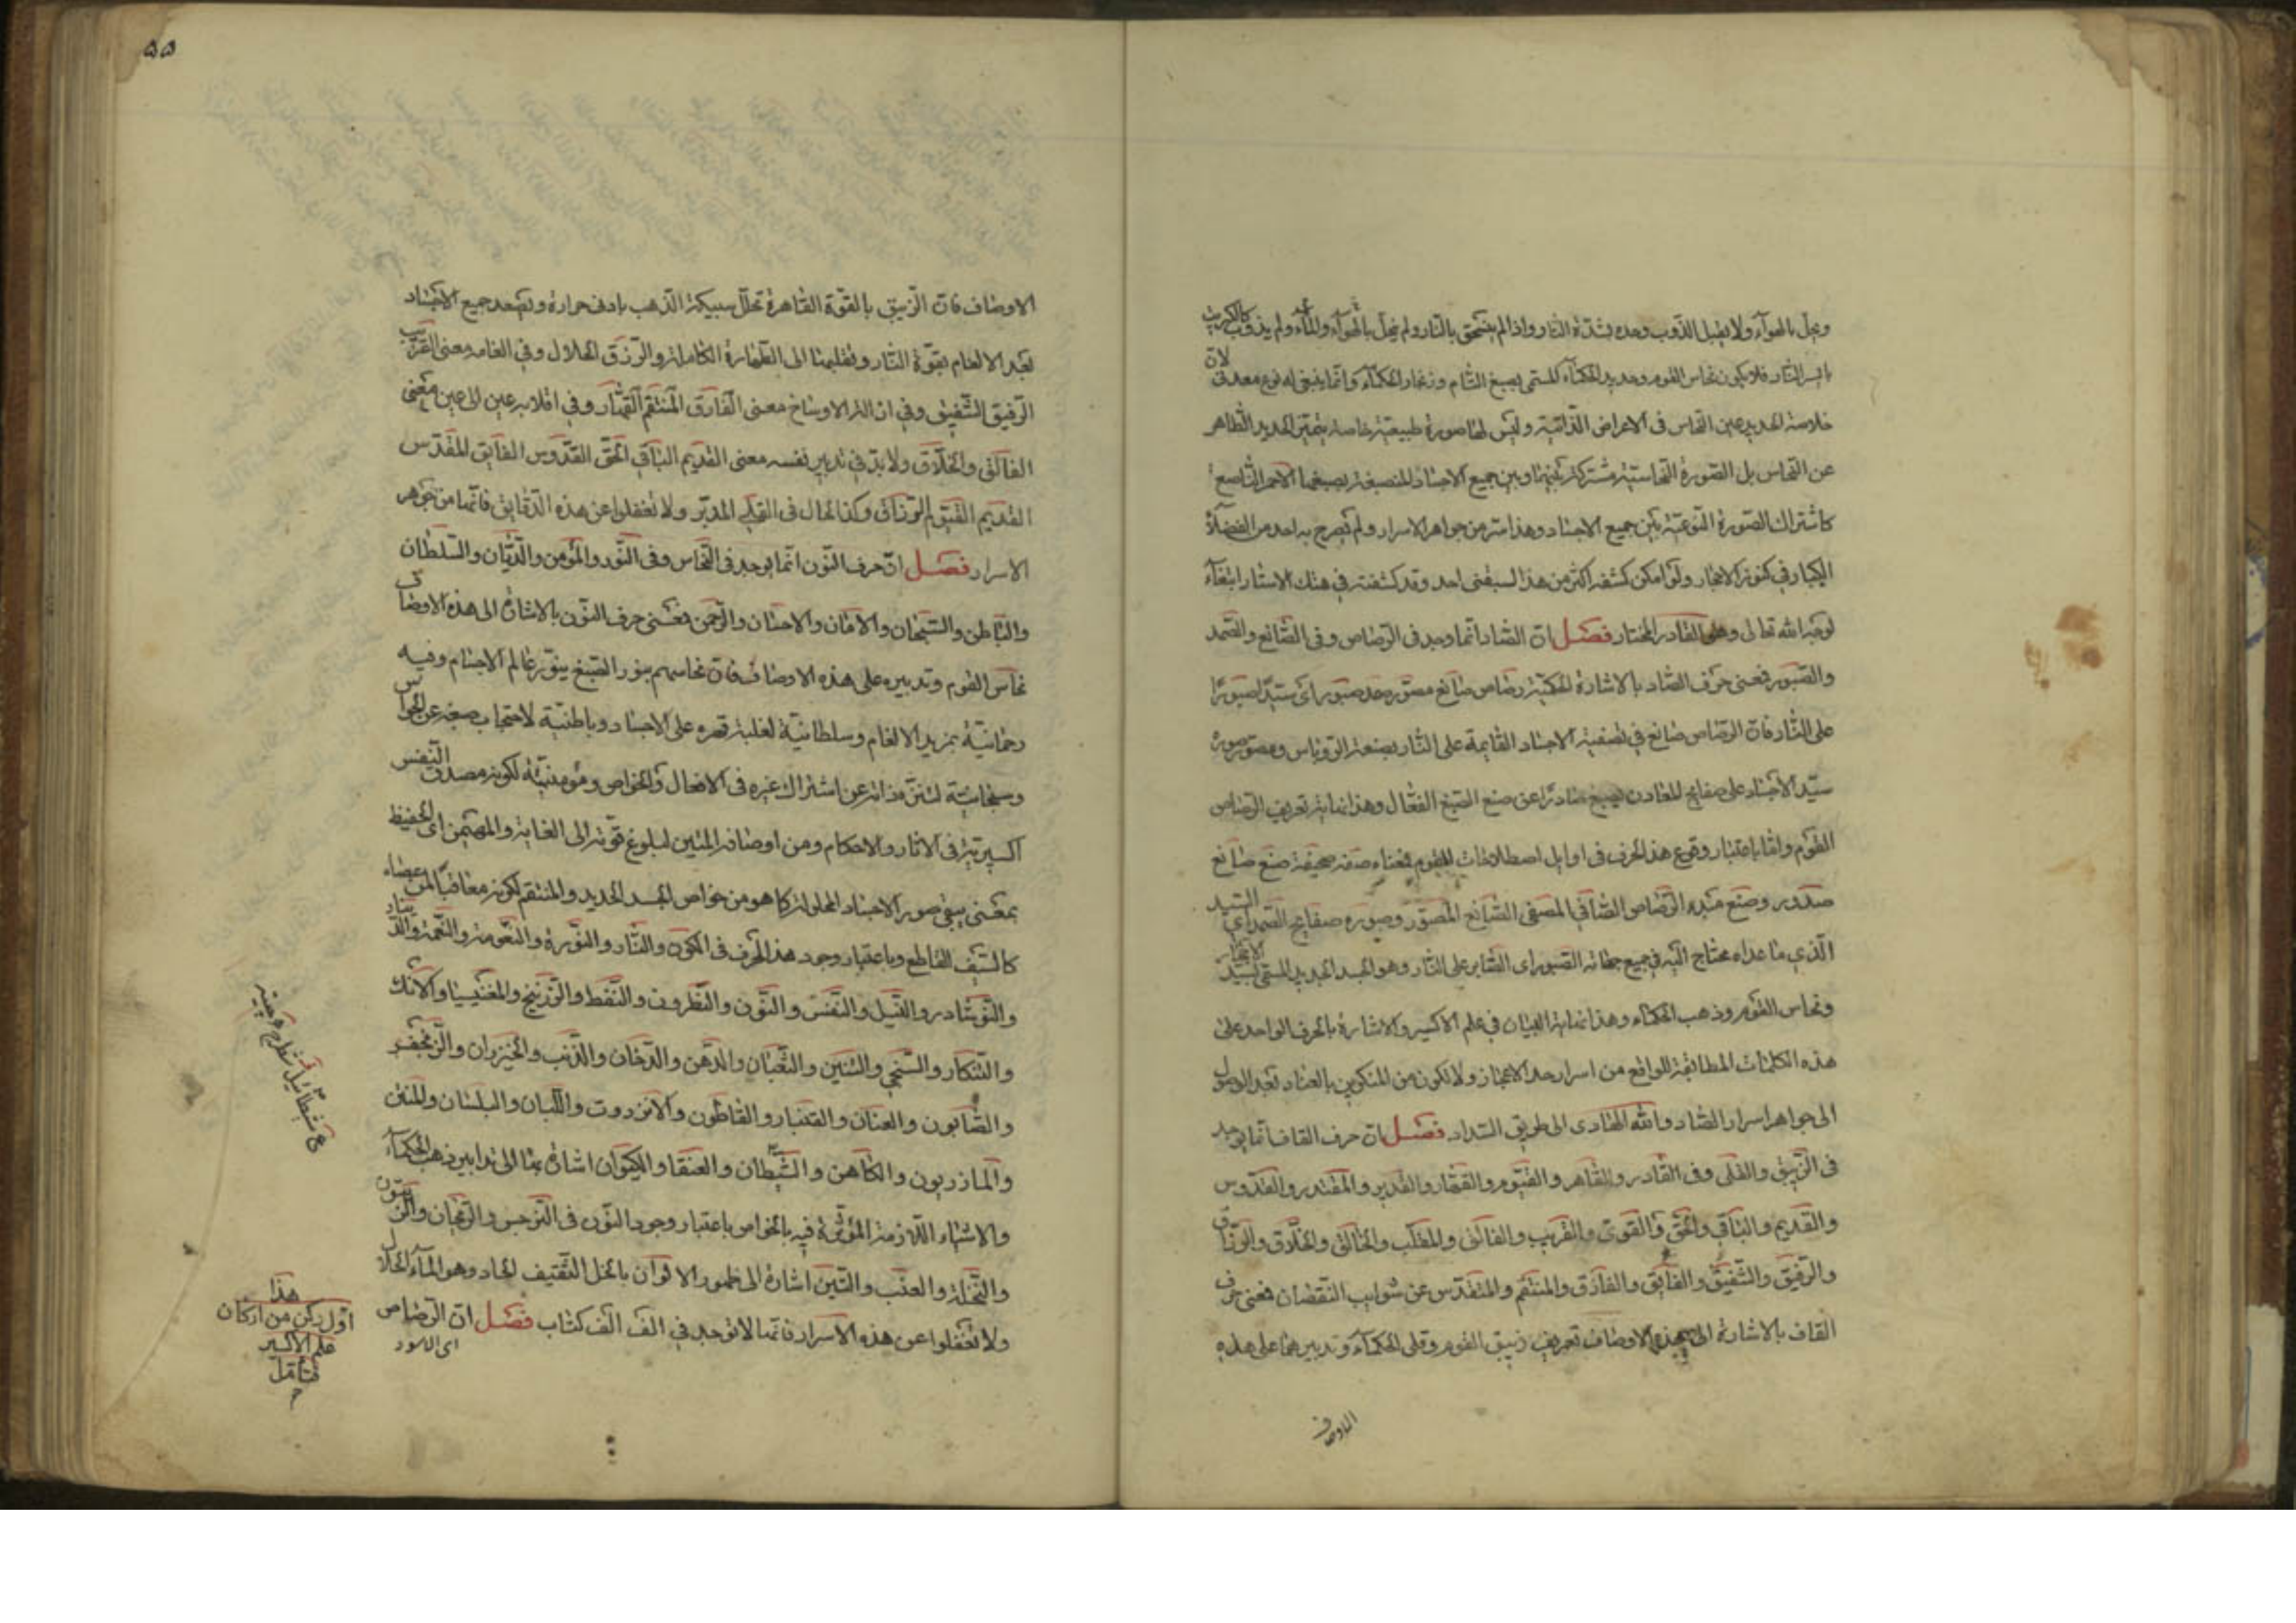 وينحل بالهواء ولا يقبل الذوب وحده بشدة النار واذا لم ينسحق بالنار ولم ينحل بالهواء والماء ولم يذوب كالكبريت
النار فلا يكون نحاس القوم وحديد الحكماء المسمى بصبغ الشام وزنجار الحكماء وانما ينبغى له نوع معدنى لان
خلاصة الحديد عين النحاس فى الاعراض الذاتية وليس لها صورة طبيعية خاصة يتميز الحديد الظاهر
عن النحاس بل الصورة النحاسية مشتركة بينها وبين جميع الاجساد المنصبغة بصبغها الاحمر الناصع
كاشتراك الصورة النوعية بين جميع الاجساد وهذا سر من جواهر الاسرار ولم يصرح به احد من الفضلاء
الكبار فى كنوز الاحجار ولو امكن كشفه اكثر من هذا لسبقنى احد وقد كشفته فى هتك الاستار ابتغاء
لوجه الله تعالى وهو القادر المختار فصل ان الصاد انما وجد فى الرصاص وفى الصانع والصمد
والصبور فمعنى حرف الصاد بالاشارة الحكمية رصاص صانع مصور صمد صبور اى سيدا صبورا
على النار فان الرصاص صانع فى تصفية الاجساد القايمة على النار بصنعة الروباس ومصور صورة
سيد الاجساد على صفايح المعادن صادرا عن صنع الصبغ الفعال وهذا نهاية تعريف الرصاص
القوم واما باعتبار وقوع هذا الحرف فى اوايل اصطلاحات القوم فمعناه صدفة صحيفة صنع صانع
صدور وصنع الرصاص الصافى المصفى الصانع المصور وصوره صفايح الصمد اى السيد
الذي ما عداه محتاج اليه فى جميع جهاته الصبور اى الصابر على النار وهو الجسد الجديد المسمى بسيد الاحجار
ونحاس القوم وذهب الحكماء وهذا نهاية البيان فى علم الاكسير والاشارة بالحرف الواحد على
هذه الكلمات المطابقة للواقع من اسرار حد الاعجاز ولا تكون من المنكرين بالعناد بعد الوصول
الى جواهر اسرار الصاد والله الهادى الى طريق السداد فصل ان حرف القاف انما يوجد
فى الزيبق والقلى وفى القادر والقاهر والقيوم والقهار والقدير والمقتدر والقدوس
والقديم والباقى والحق والقوى والقريب والفالق والمقلب والخالق والخلاق والرزاق
والرفيق والشفيق والفايق والفارق والمنتقم والمتقدس عن شوايب النقصان فمعنى حرف
القاف بالاشارة الى هذه الاوصاف تعريف زيبق القوم وقلى الحكماء وتدبيرهما على هذه
الاوصاف
۵۵
الاوصاف فان الزيبق بالقوة القاهرة تحلل سبيكة الذهب بادنى حرارة وتصعد جميع الاجساد
بعد الالغام بقوة النار وتقليبها الى الطهارة الكاملة والرزق الحلال وفى الغامه معنى القريب
الرفيق الشفيق وفى ازالة الاوساخ معنى الفارق المنتقم القهار وفى انقلابه عين الى عين معنى
الفالق والخلاق ولا بد فى تدبير نفسه معنى القديم الباقى الحق القدوس الفايق المقدس
القديم القيوم الرزاق وكذا الحال فى القلى المدبر ولا تغفلوا عن هذه الدقايق فانها من جواهر
الاسرار فصل ان حرف النون انما يوجد فى النحاس وفى النور والمؤمن والديان والسلطان
والباطن والسبحان والامان والاحسان والرحمن فمعنى حرف النون بالاشارة الى هذه الاوصاف
نحاس القوم وتدبيره على هذه الاوصاف فان نحاسهم بنور الصبغ ينور عالم الاجسام وفيه
رحمانية بمزيد الالغام وسلطانية لغلبة قهره على الاجساد وباطنية لاحتجاب صبغه عن الحواس
وسبحانية لتنزه ذاته عن اشتراك غيره فى الافعال والخواص ومؤمنية لكونه مصدق النفس
اكسيرية فى الاثار والاحكام ومن اوصافه المتين لبلوغ قوته الى الغاية والمهيمن اى الحفيظ
بمعنى يبقى صور الاجساد المحلولة كما هو من خواص الجسد الجديد والمنتقم لكونه معاقبا لمن عصاه
كالسيف القاطع وباعتبار وجود هذا الحرف فى المكون والنار والنورة والنعومة والنعمة والدينار
والنوشادر والنيل والنفس والنون والنطرون والنفط والزرنيخ والمغنيسيا والانك
والتنكار والسنجى والتنين والثعبان والدهن والدخان والذنب والخيزران والزنجفر
والصابون والعنان والقنبار والقاطون والانزروت واللبان والبلسان والمتن
والمازريون والكاهن والشيطان والعنقا والكيوان اشارة بها الى تدابير ذهب الحكماء
والاشياء اللازمة المؤثرة فيه بالخواص باعتبار وجود النون فى النرجس والريحان والزيتون
والنخلة والعنب والتين اشارة الى ظهور الالوان بالخل الثقيف الحاد وهو الماء الحلال
ولا تغفلوا عن هذه الاسرار فانها لا توجد فى الف الف كتاب فصل ان الرصاص
اى الاسود
هذا
اول ركن من اركان
علم الاكسير
فتأمل
م